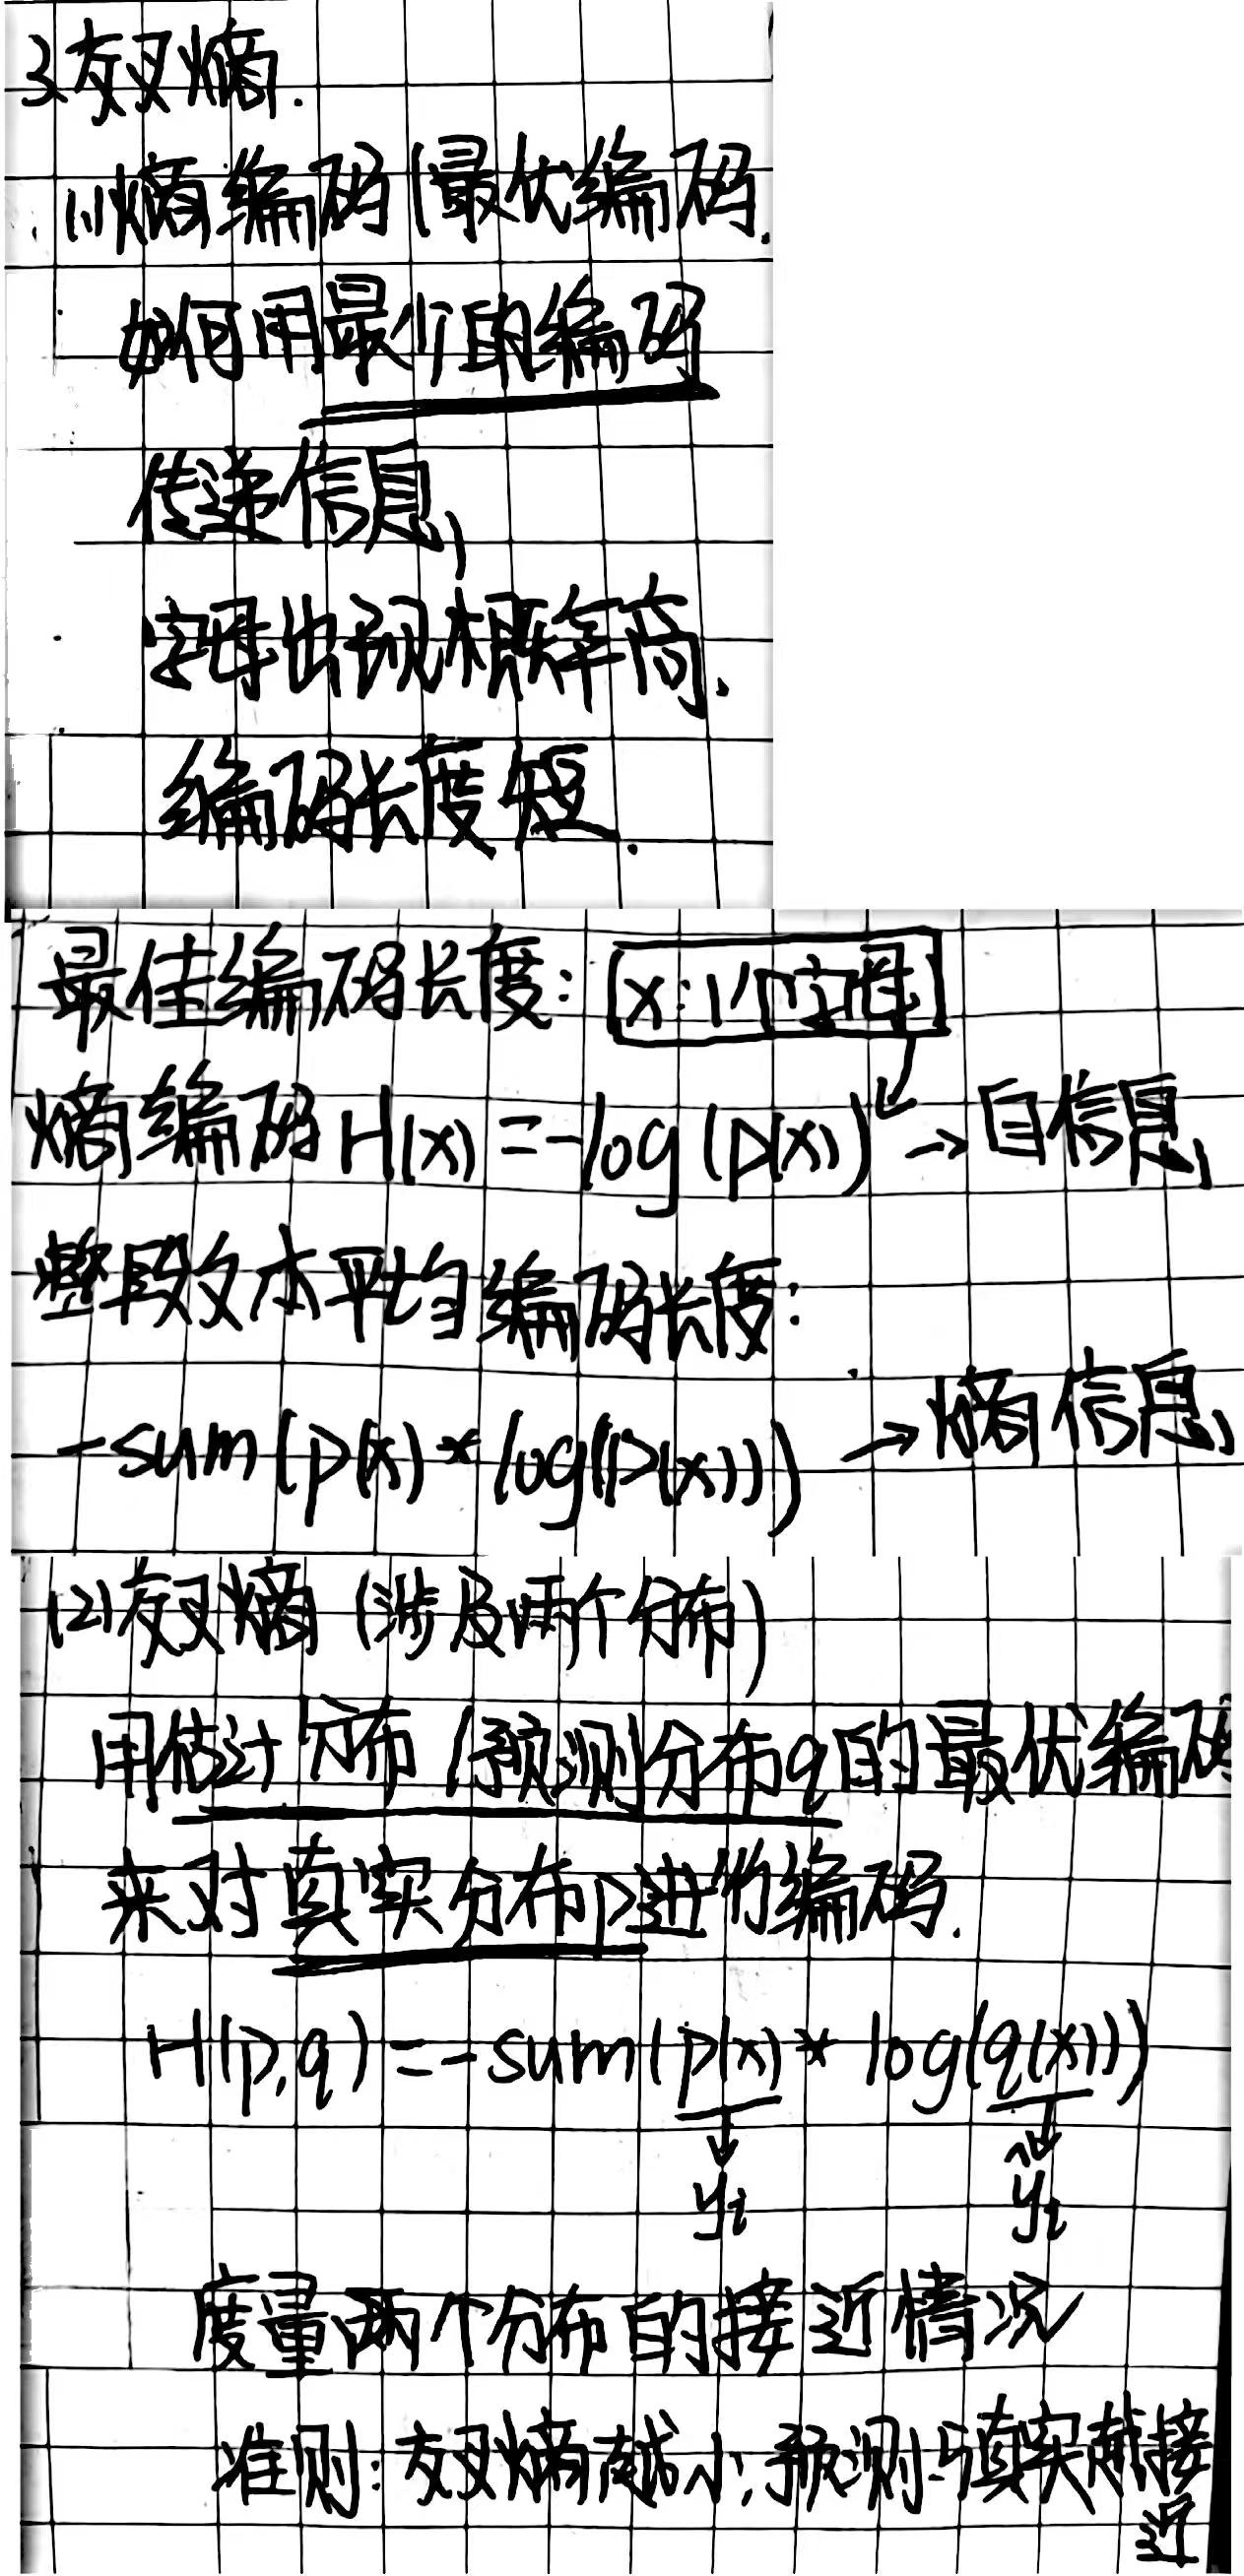 3.交叉熵.
(1)熵编码(最优编码.
如何用最少的编码
传递信息,
字母出现概率高.
编码长度短.
最佳编码长度: x:1个字母
熵编码 H(x)=-log(p(x)) → 自信息,
整段文本平均编码长度:
-sum(p(x)*log(p(x))) → 熵信息,
(2)交叉熵(涉及两个分布)
用估计分布/预测分布q的最优编码
来对真实分布p进行编码.
H(p,q)=-sum(p(x)*log(q(x)))
↓ ↓
yi ŷi
度量两个分布的接近情况
准则:交叉熵越小,预测与真实越接
近